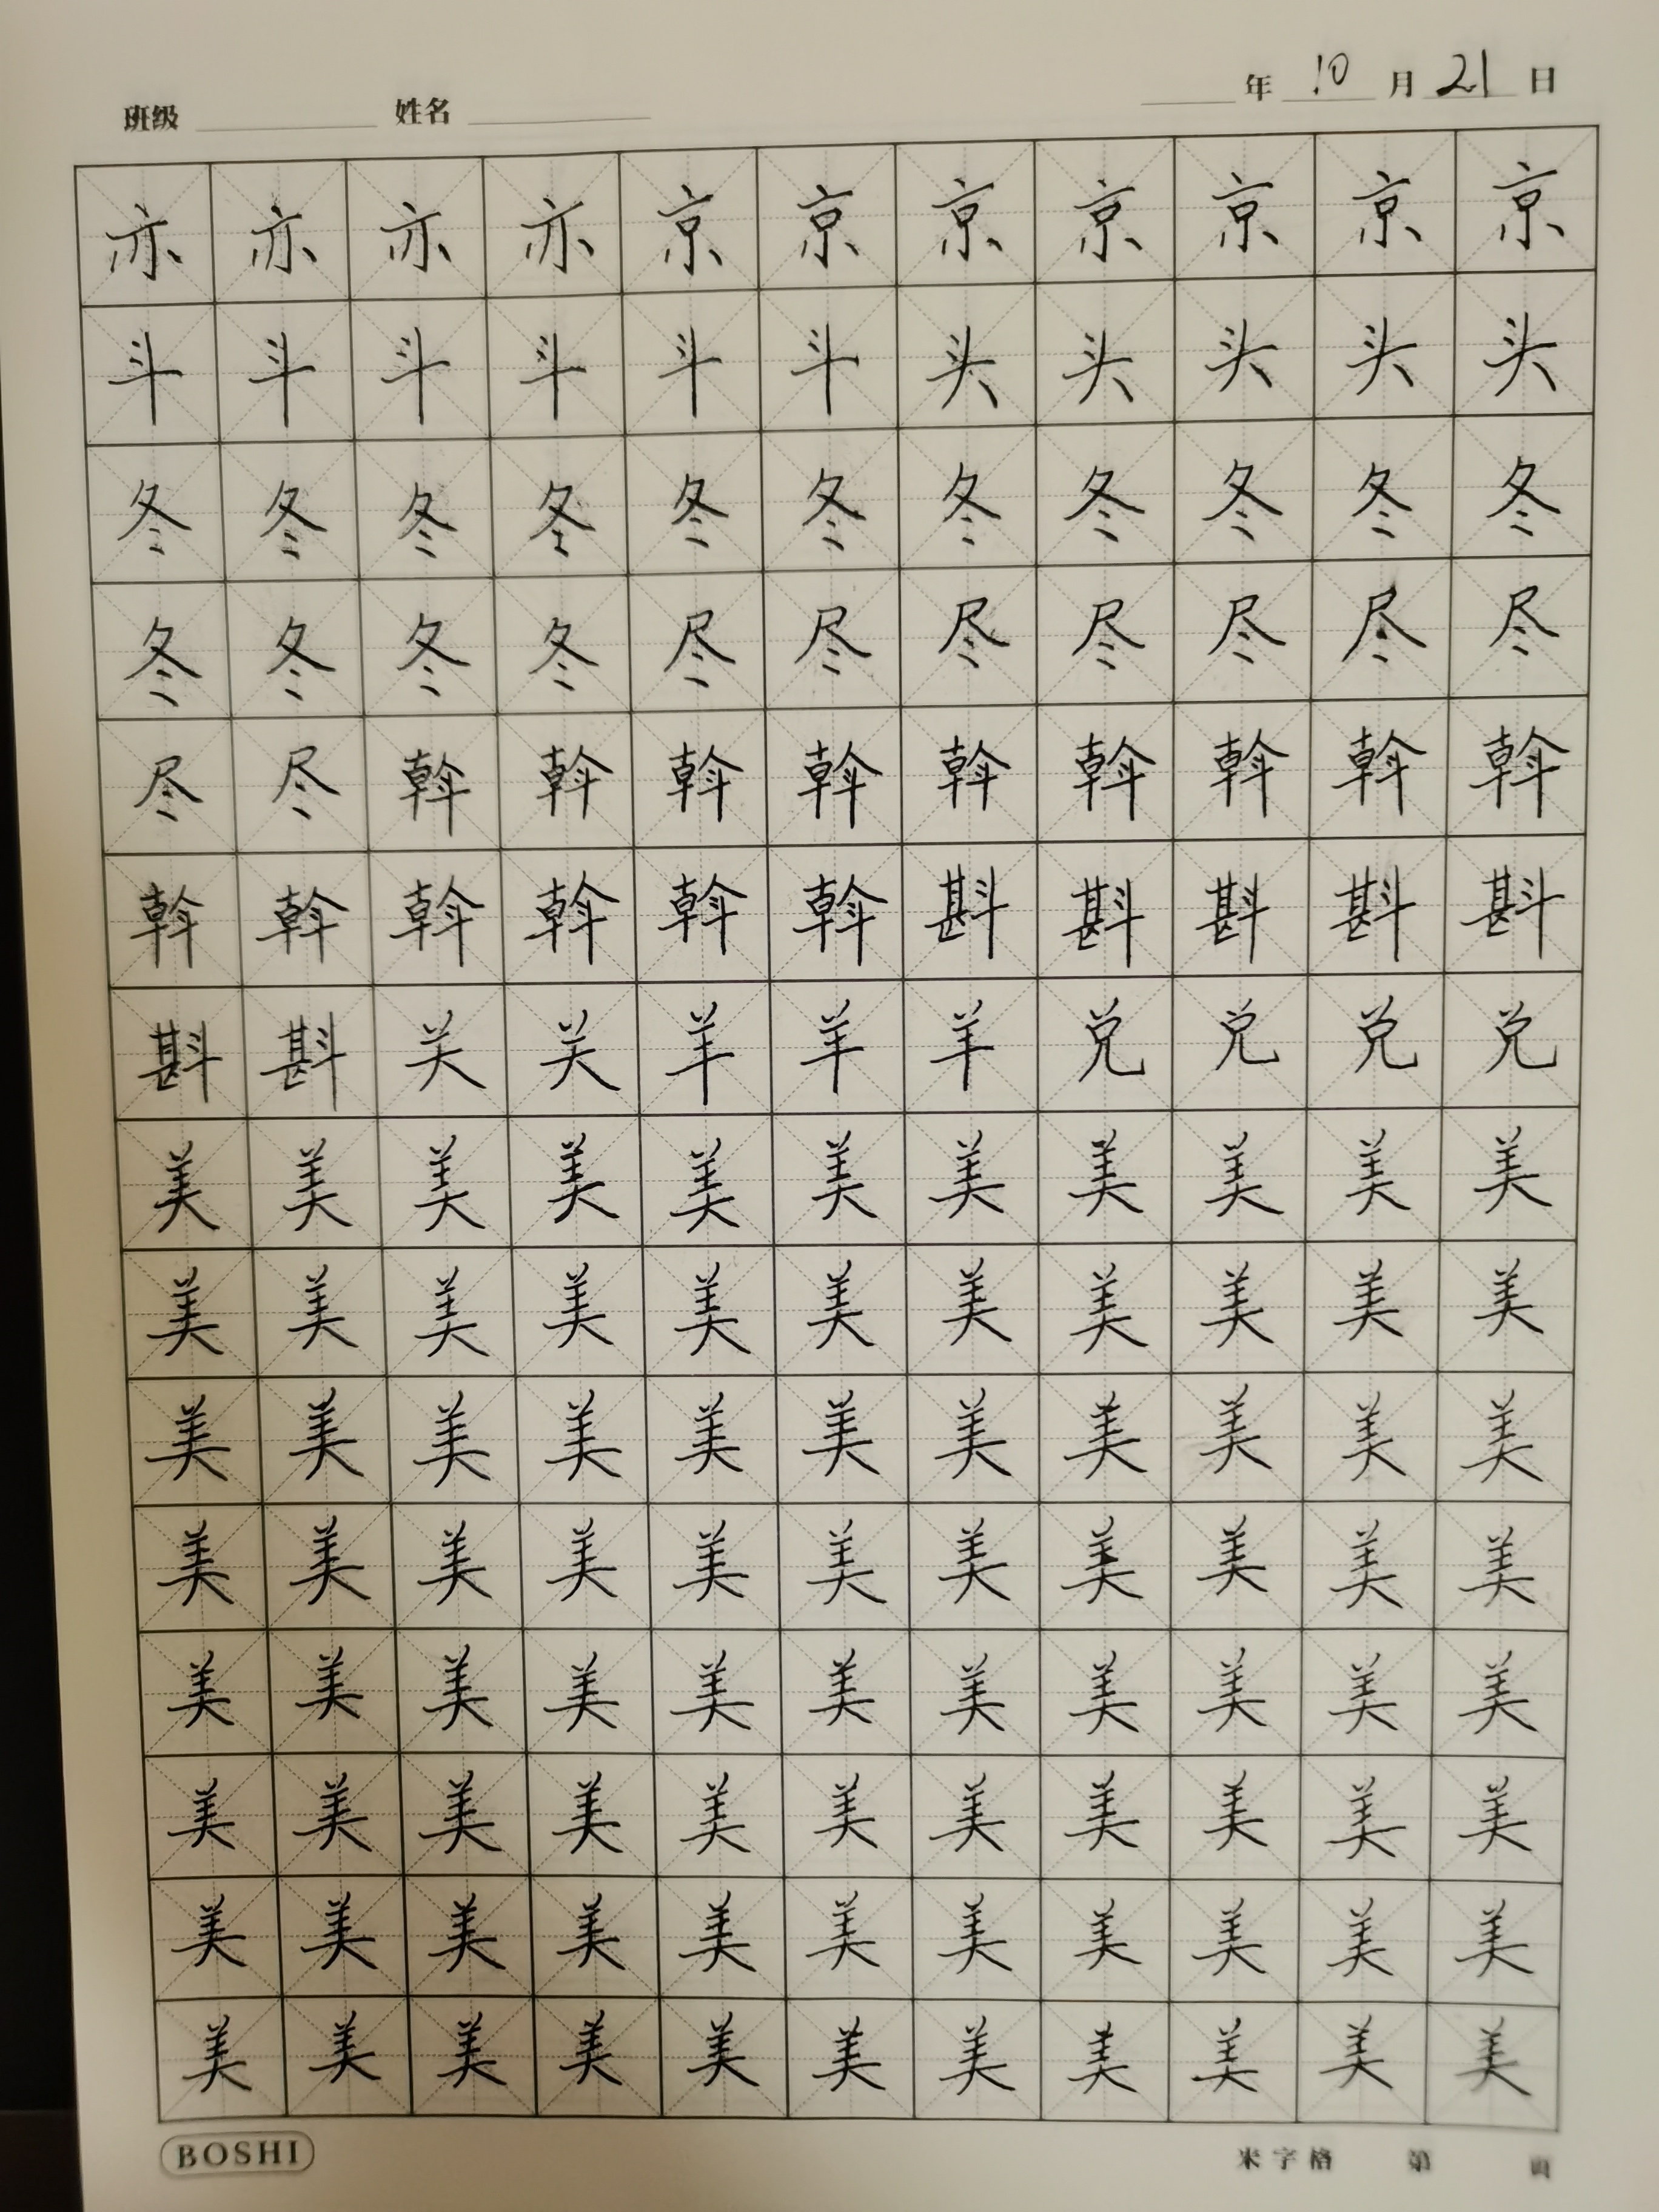 班级 姓名 年 10 月 21 日
亦 亦 亦 亦 京 京 京 京 京 京 京
斗 斗 斗 斗 斗 斗 头 头 头 头 头
冬 冬 冬 冬 冬 冬 冬 冬 冬 冬 冬
冬 冬 冬 冬 尽 尽 尽 尽 尽 尽 尽
尽 尽 斡 斡 斡 斡 斡 斡 斡 斡 斡
斡 斡 斡 斡 斡 斡 斟 斟 斟 斟 斟
斟 斟 关 关 羊 羊 羊 兑 兑 兑 兑
美 美 美 美 美 美 美 美 美 美 美
美 美 美 美 美 美 美 美 美 美 美
美 美 美 美 美 美 美 美 美 美 美
美 美 美 美 美 美 美 美 美 美 美
美 美 美 美 美 美 美 美 美 美 美
美 美 美 美 美 美 美 美 美 美 美
美 美 美 美 美 美 美 美 美 美 美
美 美 美 美 美 美 美 美 美 美 美
BOSHI 米字格 第 页